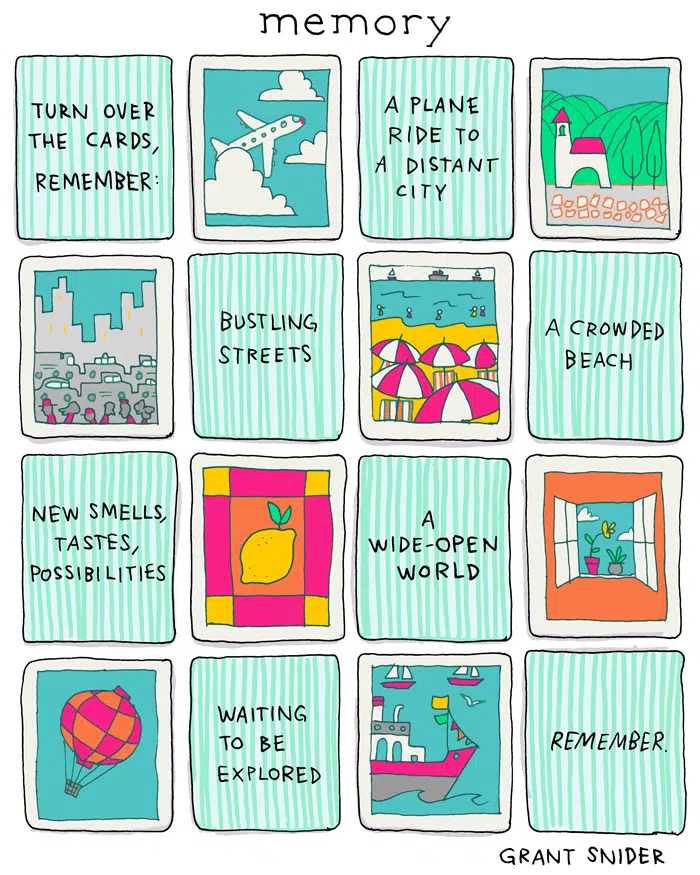 memory
TURN OVER
THE CARDS,
REMEMBER:
A PLANE
RIDE TO
A DISTANT
CITY
BUSTLING
STREETS
A CROWDED
BEACH
NEW SMELLS,
TASTES,
POSSIBILITIES
A
WIDE-OPEN
WORLD
WAITING
TO BE
EXPLORED
REMEMBER.
GRANT SNIDER